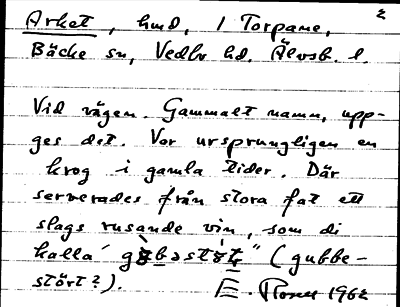 2
Arket, hmd, 1 Torpane,
Bäcke sn, Vedbo hd. Älvsb. l.
Vid vägen. Gammalt namn, upp-
ges det. Var ursprungligen en
krog i gamla tider. Där
serverades från stora fat ett
slags rusande vin, som di
kalla" (gubbe-
stört?). E. 1962